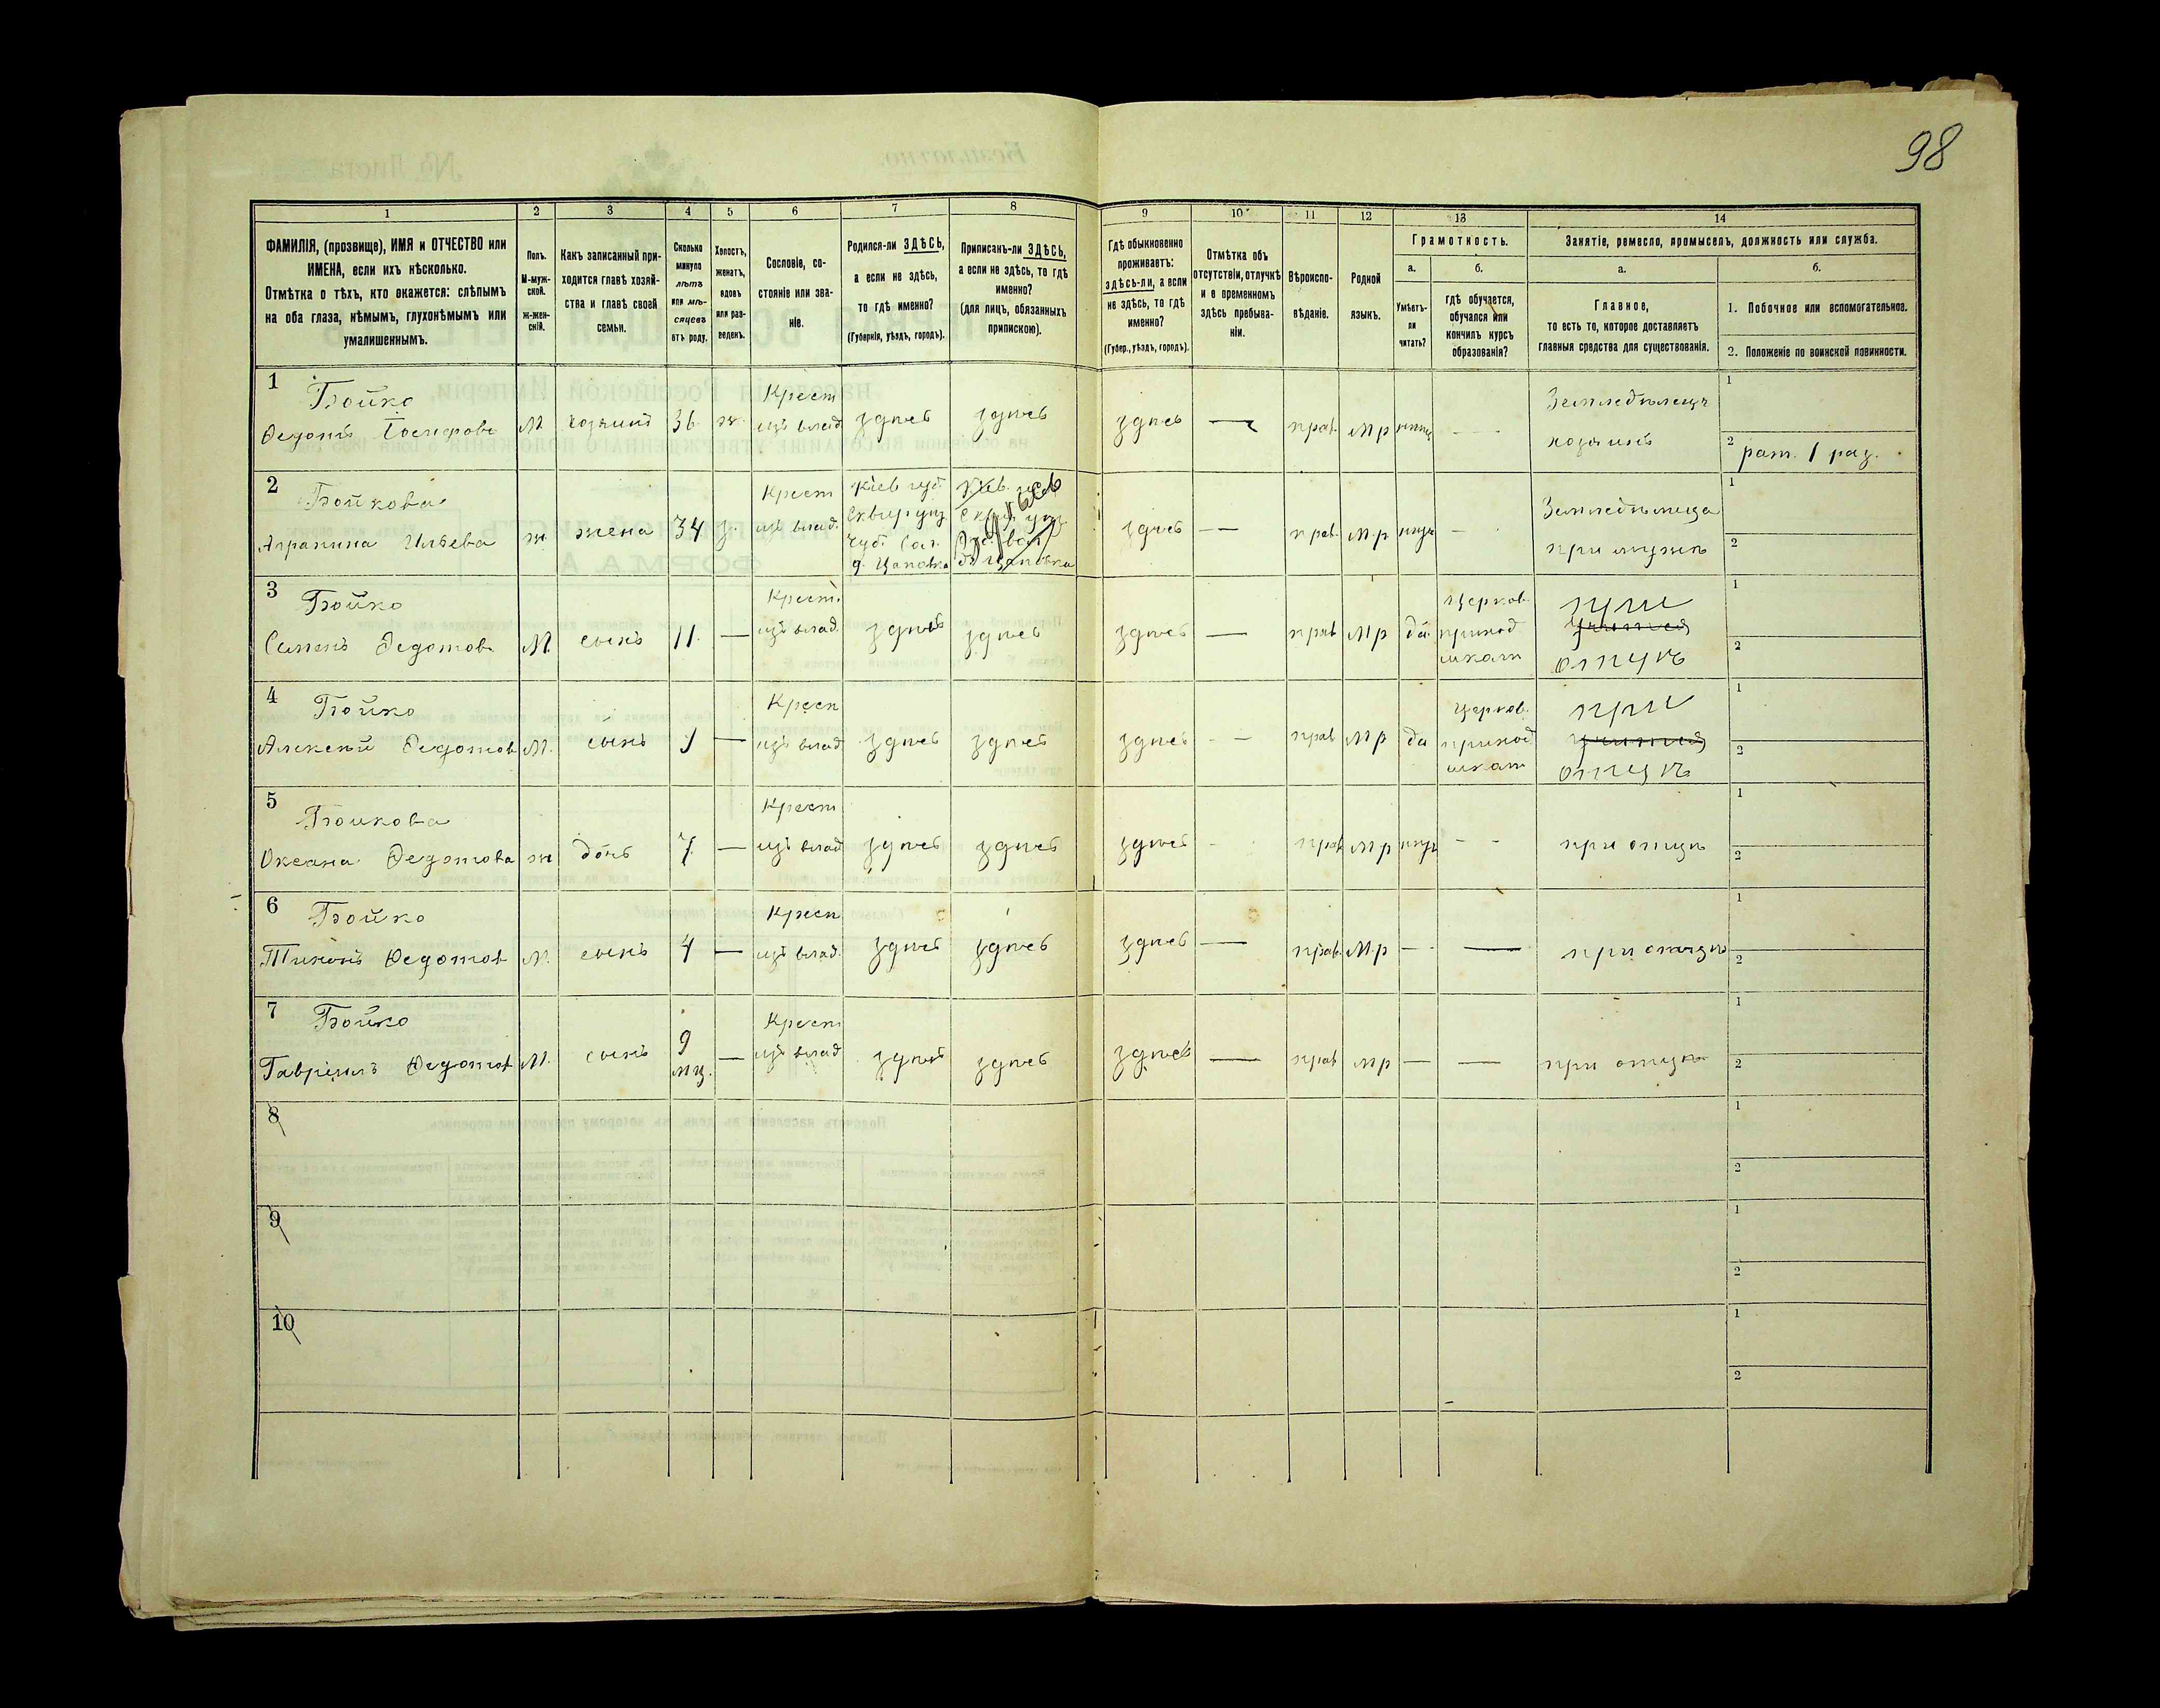 98
1 2 3 4 5 6 7 8 9 10 11 12 13 14
ФАМИЛІЯ, (прозвище), ИМЯ и ОТЧЕСТВО или
ИМЕНА, если ихъ нѣсколько.
Отмѣтка о тѣхъ, кто окажется: слѣпымъ
на оба глаза, нѣмымъ, глухонѣмымъ или
умалишеннымъ.
Полъ.
М-муж-
ской.
Ж-жен-
скій.
Какъ записанный при-
ходится главѣ хозяй-
ства и главѣ своей
семьи.
Сколько
минуло
лѣтъ
или мѣ-
сяцевъ
отъ роду.
Холостъ,
женатъ,
вдовъ
или раз-
веденъ.
Сословіе, со-
стояніе или зва-
ніе.
Родился-ли ЗДѢСЬ,
а если не здѣсь,
то гдѣ именно?
(Губернія, уѣздъ, городъ).
Приписанъ-ли ЗДѢСЬ,
а если не здѣсь, то гдѣ
именно?
(для лицъ, обязанныхъ
припискою).
Гдѣ обыкновенно
проживаетъ:
здѣсь-ли, а если
не здѣсь, то гдѣ
именно?
(Губер., уѣздъ, городъ).
Отмѣтка объ
отсутствіи, отлучкѣ
и о временномъ
здѣсь пребыва-
ніи.
Вѣроиспо-
вѣданіе.
Родной
языкъ.
Грамотность.
а.
Умѣетъ-
ли
читать?
б.
гдѣ обучается,
обучался или
кончилъ курсъ
образованія?
Занятіе, ремесло, промыселъ, должность или служба.
а.
Главное,
то есть то, которое доставляетъ
главныя средства для существованія.
б.
1. Побочное или вспомогательное.
2. Положеніе по воинской повинности.
1 Бойко
Федотъ Іосифовъ М хозяинъ 36 ж. Крест изъ влад здѣсь здѣсь здѣсь — прав. М р Земледѣлецъ хозяинъ
1
2 рат. 1 раз.
2 Бойкова
Агрипина Ильева ж жена 34 з. Крест изъ влад. Кіев губ. Сквир уѣз д. Цаповка здѣсь здѣсь — прав. М.р Земледѣлица при мужѣ
1
2
3 Бойко
Семенъ Федотовъ М. сынъ 11. — Крест. изъ влад. здѣсь здѣсь здѣсь — прав М р да церков. приход школи при отцѣ
1
2
4 Бойко
Алексѣй Федотов М. сынъ 9 — Крест изъ влад здѣсь здѣсь здѣсь — прав М р да церков. приход школи при отцѣ
1
2
5 Бойкова
Оксана Федотова ж дочь 7 — Крест изъ влад здѣсь здѣсь здѣсь - прав М р - - при отцѣ
1
2
6 Бойко
Тихонъ Федотов М. сынъ 4 — Крест изъ влад. здѣсь здѣсь здѣсь — прав. М.р — — при отцѣ
1
2
7 Бойко
Гавріилъ Федотов М. сынъ 9 мц. — Крест изъ влад здѣсь здѣсь здѣсь — прав М р — — при отцѣ
1
2
8
1
2
9
1
2
10
1
2